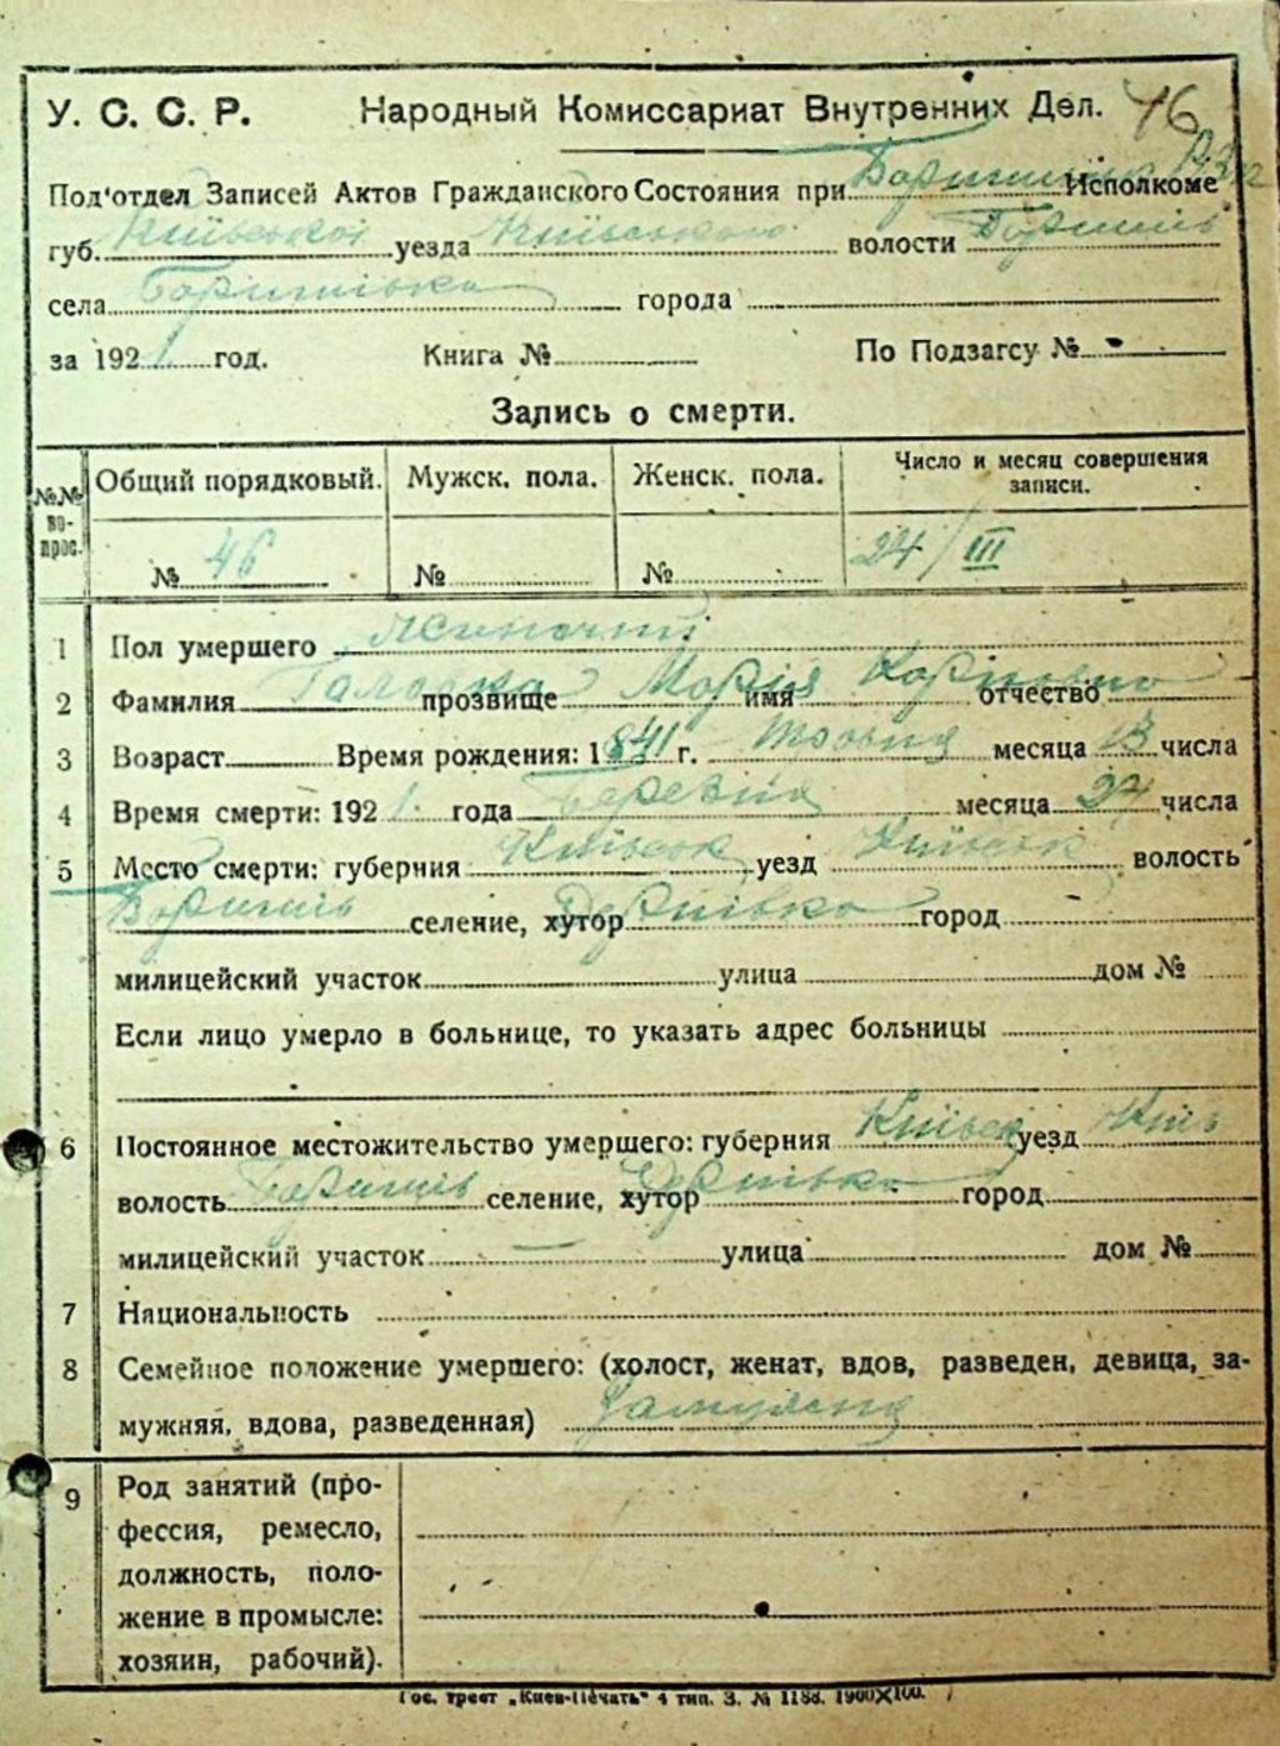 У. С. С. Р. Народный Комиссариат Внутренних Дел. 46
Под'отдел Записей Актов Гражданского Состояния при Исполкоме
губ. Київської уезда Київського волости Баришпіль
села города
за 1921 год. Книга № По Подзагсу №
Запись о смерти.
№№ во-прос. Общий порядковый. Мужск. пола. Женск. пола. Число и месяц совершения записи.
№ 46 № № 24/III
1 Пол умершего Жиночий
2 Фамилия прозвище Марія имя Карповна отчество
3 Возраст Время рождения: 1841 г. Травня месяца 13 числа
4 Время смерти: 1921 года Березня месяца числа
5 Место смерти: губерния Київськ уезд Київськ волость
Баришпіль селение, хутор город
милицейский участок улица дом №
Если лицо умерло в больнице, то указать адрес больницы
6 Постоянное местожительство умершего: губерния Київськ уезд Київ
волость Баришпіль селение, хутор город
милицейский участок улица дом №
7 Национальность
8 Семейное положение умершего: (холост, женат, вдов, разведен, девица, за-
мужняя, вдова, разведенная) Замужня
9 Род занятий (про-
фессия, ремесло,
должность, поло-
жение в промысле:
хозяин, рабочий).
Гос. трест „Киев-Печать“ 4 тип. З. № 1188. 1900×100.